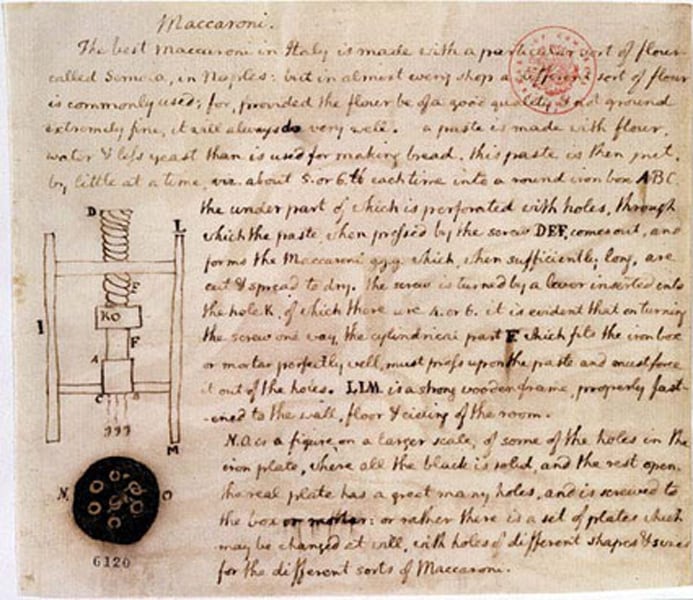 Maccaroni.
The best maccaroni in Italy is made with a particular sort of flour
called Semola, in Naples: but in almost every shop a different sort of flour
is commonly used; for, provided the flour be of a good quality, & not ground
extremely fine, it will always do very well. a paste is made with flour,
water & less yeast than is used for making bread. this paste is then put,
by little at a time, viz. about 5. or 6. ℔ each time into a round iron box ABC.
the under part of which is perforated with holes, through
which the paste, when pressed by the screw DEF, comes out, and
forms the Maccaroni ggg which, when sufficiently long, are
cut & spread to dry. The screw is turned by a lever inserted into
the hole K, of which there are 4. or 6. it is evident that on turning
the screw one way, the cylindrical part F which fits the iron box
or mortar perfectly well, must press upon the paste and must force
it out of the holes. LLM. is a strong wooden frame, properly fast-
-ened to the wall, floor & cieling of the room.
N.O. is a figure, on a larger scale, of some of the holes in the
iron plate, where all the black is solid, and the rest open.
the real plate has a great many holes, and is screwed to
the box or mortar: or rather there is a set of plates which
may be changed at will, with holes of different shapes & sizes
for the different sorts of Maccaroni.
D
L
I
KO
F
A
C
B
ggg
M
N.
O
6120